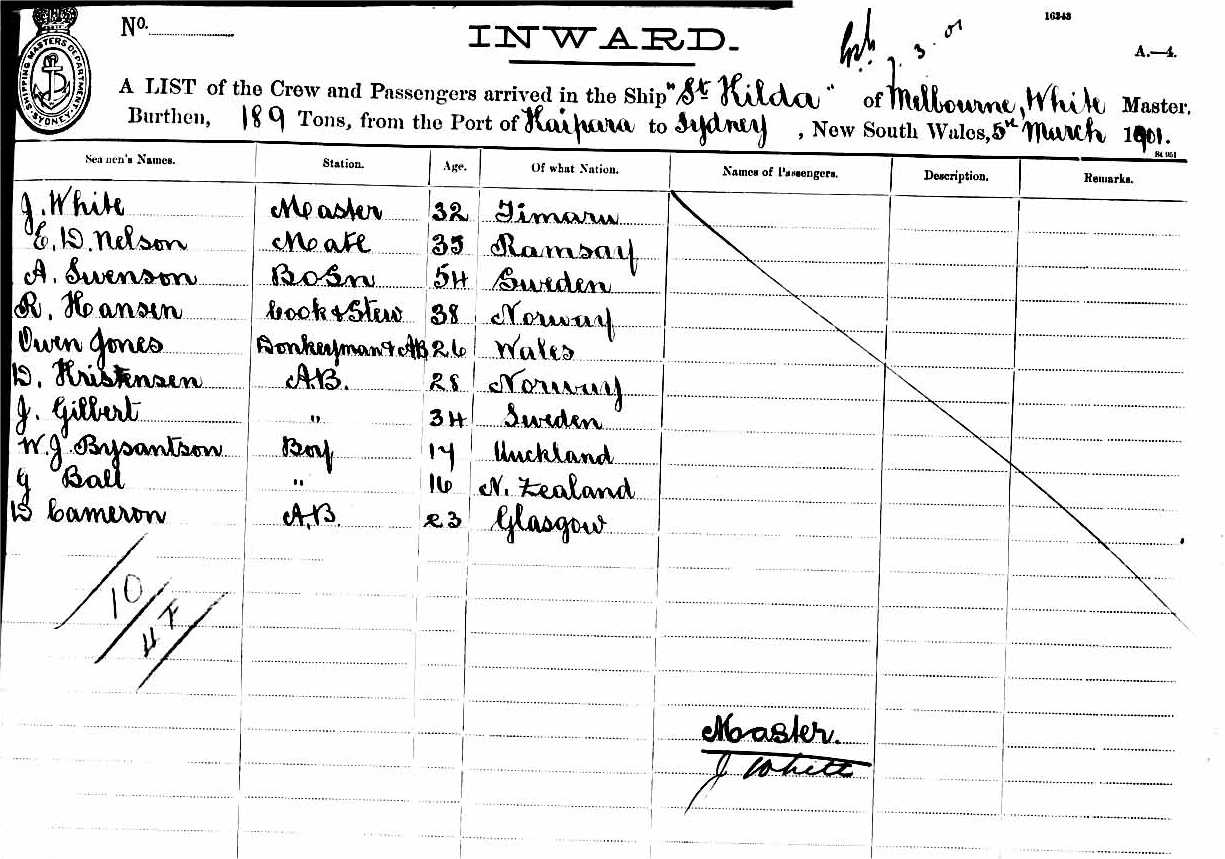 SHIPPING MASTERS DEPARTMENT
SYDNEY
No.
INWARD.
16343
7. 3. 01
A.—4.
A LIST of the Crew and Passengers arrived in the Ship "St Kilda" of Melbourne, White Master,
Burthen, 189 Tons, from the Port of Kaipara to Sydney, New South Wales, 5th March 1901.
Seamen's Names. Station. Age. Of what Nation. Names of Passengers. Description. Remarks.
J. White Master 32 Timaru
E. D. Nelson Mate 35 Ramsay
A. Swenson BoSn 54 Sweden
R. Hansen Cook & Stew 38 Norway
Owen Jones Donkeyman & AB 26 Wales
D. Kristensen A.B. 28 Norway
J. Gilbert " 34 Sweden
W. J. Bysantson Boy 17 Auckland
G Ball " 16 N. Zealand
D Cameron A.B. 23 Glasgow
10
4 F
Master.
J White